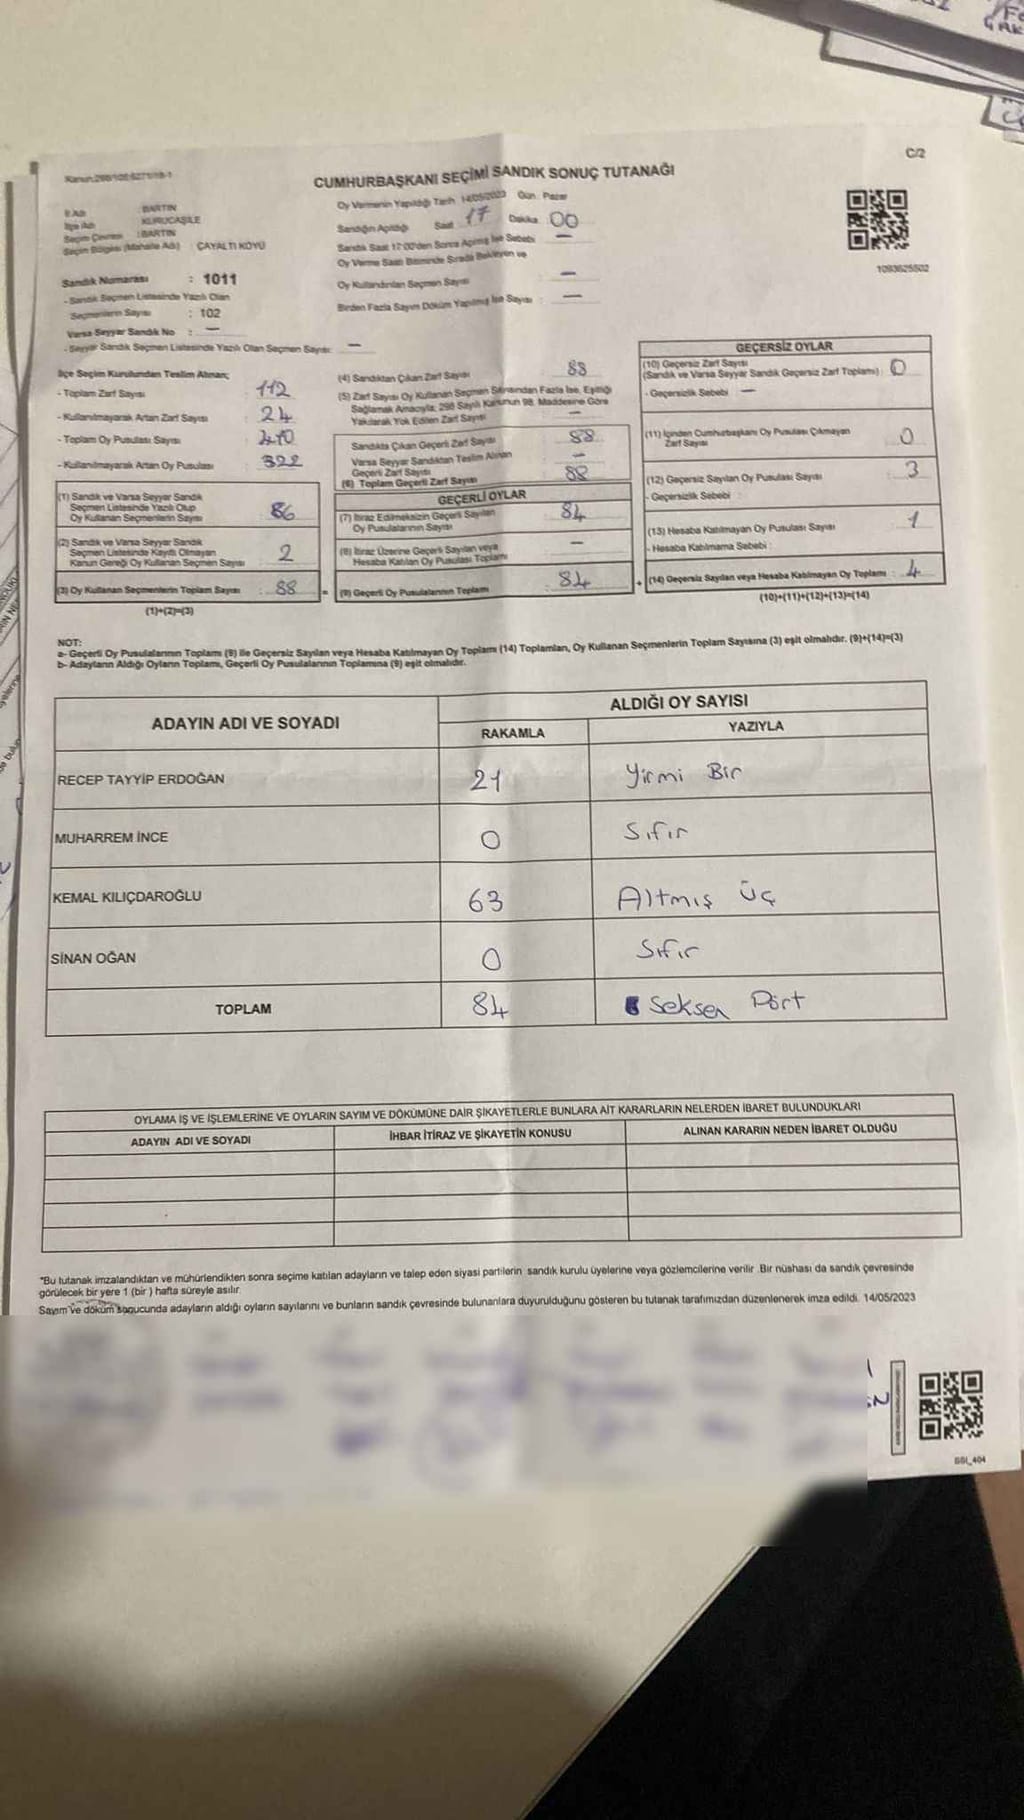 C/2
CUMHURBAŞKANI SEÇİMİ SANDIK SONUÇ TUTANAĞI
İl Adı : BARTIN
İlçe Adı : KURUCAŞİLE
Seçim Çevresi : BARTIN
Seçim Bölgesi (Mahalle Adı) : ÇAYALTI KÖYÜ
Sandık Numarası : 1011
- Sandık Seçmen Listesinde Yazılı Olan
Seçmenlerin Sayısı : 102
Varsa Seyyar Sandık No : —
- Seyyar Sandık Seçmen Listesinde Yazılı Olan Seçmen Sayısı: —
Oy Vermenin Yapıldığı Tarih 14/05/2023 Gün Pazar
Sandığın Açıldığı Saat 17 Dakika 00
Sandık Saat 17:00'den Sonra Açılmış İse Sebebi —
Oy Verme Saati Bitiminde Sırada Bekleyen ve
Oy Kullandırılan Seçmen Sayısı —
Birden Fazla Sayım Döküm Yapılmış İse Sayısı : —
1093625502
İlçe Seçim Kurulundan Teslim Alınan;
- Toplam Zarf Sayısı 112
- Kullanılmayarak Artan Zarf Sayısı 24
- Toplam Oy Pusulası Sayısı 410
- Kullanılmayarak Artan Oy Pusulası 322
(1) Sandık ve Varsa Seyyar Sandık
Seçmen Listesinde Yazılı Olup
Oy Kullanan Seçmenlerin Sayısı : 86
(2) Sandık ve Varsa Seyyar Sandık
Seçmen Listesinde Kayıtlı Olmayan
Kanun Gereği Oy Kullanan Seçmen Sayısı 2
(3) Oy Kullanan Seçmenlerin Toplam Sayısı : 88
(1)+(2)=(3)
(4) Sandıktan Çıkan Zarf Sayısı 88
(5) Zarf Sayısı Oy Kullanan Seçmen Sayısından Fazla İse, Eşitliği
Sağlamak Amacıyla; 298 Sayılı Kanunun 98. Maddesine Göre
Yakılarak Yok Edilen Zarf Sayısı —
Sandıkta Çıkan Geçerli Zarf Sayısı : 88
Varsa Seyyar Sandıktan Teslim Alınan
Geçerli Zarf Sayısı —
(6) Toplam Geçerli Zarf Sayısı 88
GEÇERLİ OYLAR
(7) İtiraz Edilmeksizin Geçerli Sayılan
Oy Pusulalarının Sayısı : 84
(8) İtiraz Üzerine Geçerli Sayılan veya
Hesaba Katılan Oy Pusulası Toplamı —
= (9) Geçerli Oy Pusulalarının Toplamı : 84 +
GEÇERSİZ OYLAR
(10) Geçersiz Zarf Sayısı
(Sandık ve Varsa Seyyar Sandık Geçersiz Zarf Toplamı) : 0
- Geçersizlik Sebebi —
(11) İçinden Cumhurbaşkanı Oy Pusulası Çıkmayan
Zarf Sayısı 0
(12) Geçersiz Sayılan Oy Pusulası Sayısı : 3
- Geçersizlik Sebebi :
(13) Hesaba Katılmayan Oy Pusulası Sayısı 1
- Hesaba Katılmama Sebebi :
(14) Geçersiz Sayılan veya Hesaba Katılmayan Oy Toplamı : 4
(10)+(11)+(12)+(13)=(14)
NOT:
a- Geçerli Oy Pusulalarının Toplamı (9) ile Geçersiz Sayılan veya Hesaba Katılmayan Oy Toplamı (14) Toplamları, Oy Kullanan Seçmenlerin Toplam Sayısına (3) eşit olmalıdır. (9)+(14)=(3)
b- Adayların Aldığı Oyların Toplamı, Geçerli Oy Pusulalarının Toplamına (9) eşit olmalıdır.
ADAYIN ADI VE SOYADI
ALDIĞI OY SAYISI
RAKAMLA YAZIYLA
RECEP TAYYİP ERDOĞAN 21 Yirmi Bir
MUHARREM İNCE 0 Sıfır
KEMAL KILIÇDAROĞLU 63 Altmış Üç
SİNAN OĞAN 0 Sıfır
TOPLAM 84 Seksen Dört
OYLAMA İŞ VE İŞLEMLERİNE VE OYLARIN SAYIM VE DÖKÜMÜNE DAİR ŞİKAYETLERLE BUNLARA AİT KARARLARIN NELERDEN İBARET BULUNDUKLARI
ADAYIN ADI VE SOYADI İHBAR İTİRAZ VE ŞİKAYETİN KONUSU ALINAN KARARIN NEDEN İBARET OLDUĞU
*Bu tutanak imzalandıktan ve mühürlendikten sonra seçime katılan adayların ve talep eden siyasi partilerin sandık kurulu üyelerine veya gözlemcilerine verilir. Bir nüshası da sandık çevresinde
görülecek bir yere 1 (bir) hafta süreyle asılır.
Sayım ve döküm sonucunda adayların aldığı oyların sayılarını ve bunların sandık çevresinde bulunanlara duyurulduğunu gösteren bu tutanak tarafımızdan düzenlenerek imza edildi. 14/05/2023